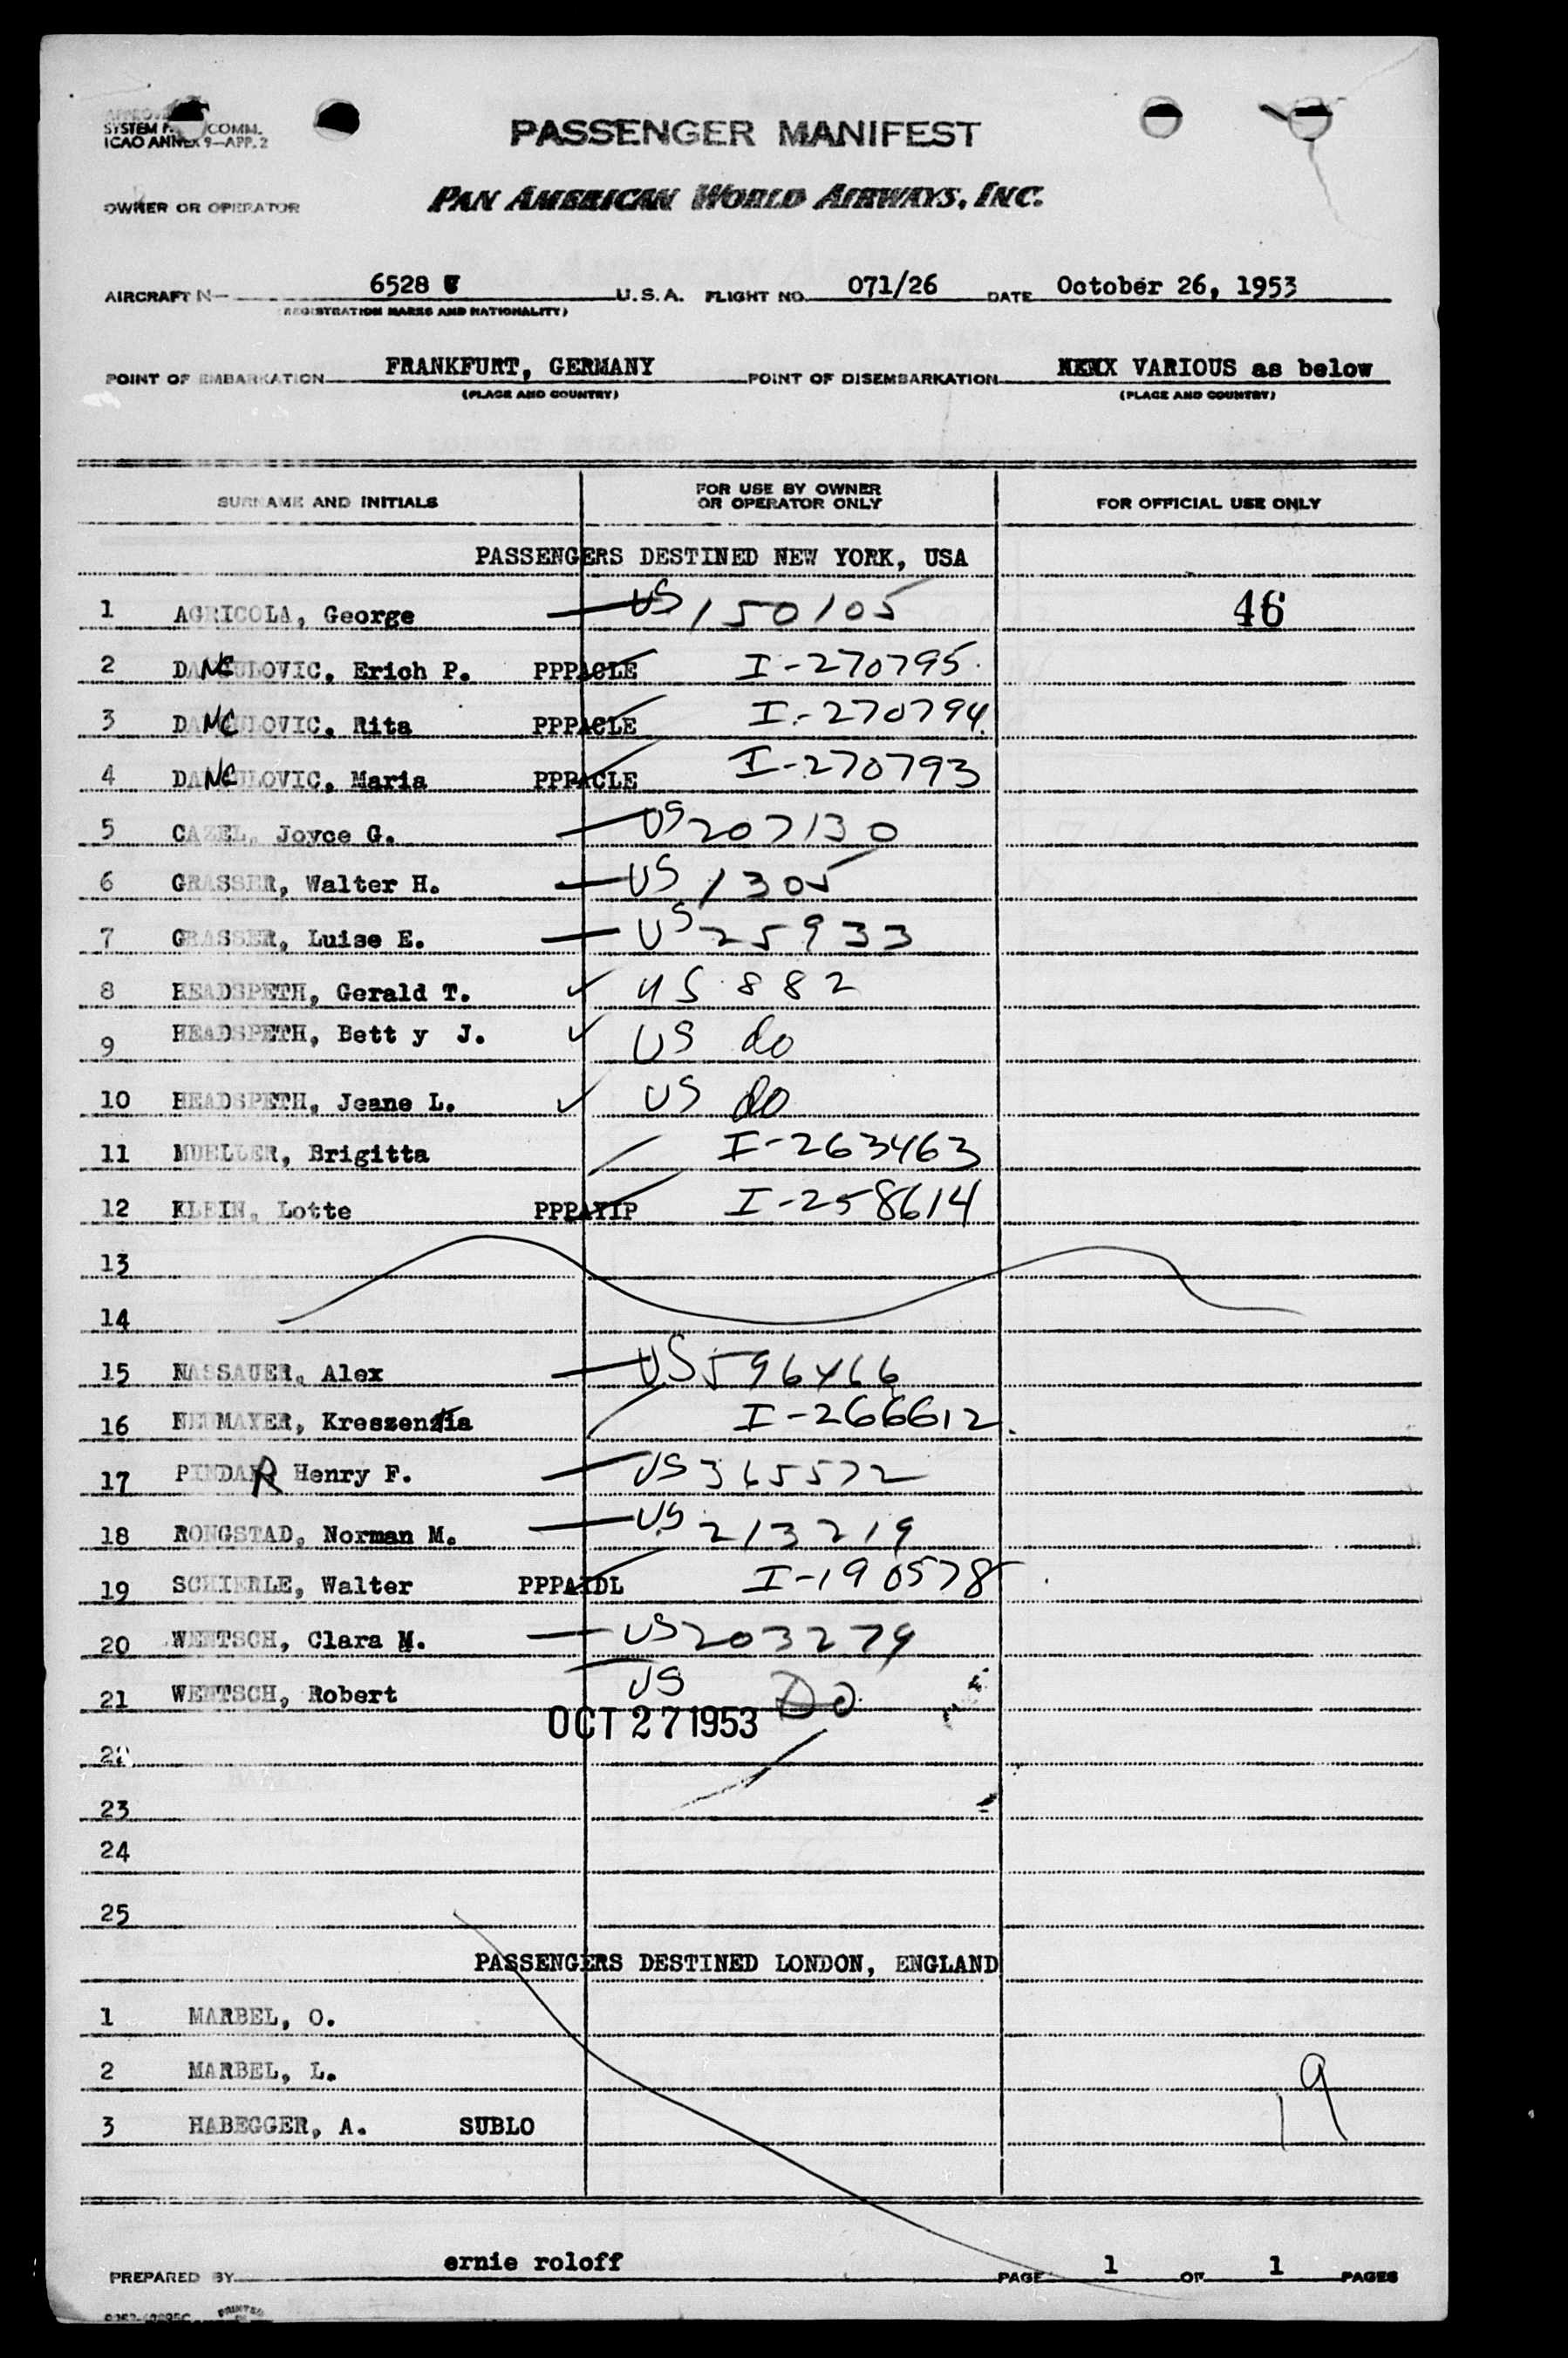 APPROVED
SYSTEM COMM.
ICAO ANNEX 9—APP. 2
PASSENGER MANIFEST
OWNER OR OPERATOR PAN AMERICAN WORLD AIRWAYS, INC.
AIRCRAFT N— 6528 U.S.A. FLIGHT NO. 071/26 DATE October 26, 1953
(REGISTRATION MARKS AND NATIONALITY)
POINT OF EMBARKATION FRANKFURT, GERMANY POINT OF DISEMBARKATION VARIOUS as below
(PLACE AND COUNTRY) (PLACE AND COUNTRY)
SURNAME AND INITIALS FOR USE BY OWNER OR OPERATOR ONLY FOR OFFICIAL USE ONLY
PASSENGERS DESTINED NEW YORK, USA
1 AGRICOLA, George US 150105 46
2 DANCULOVIC, Erich P. PPPACLE I-270795
3 DANCULOVIC, Rita PPPACLE I-270794
4 DANCULOVIC, Maria PPPACLE I-270793
5 CAZEL, Joyce G. US 207130
6 GRASSER, Walter H. US 1305
7 GRASSER, Luise E. US 25933
8 HEADSPETH, Gerald T. US 882
9 HEADSPETH, Bett y J. US do
10 HEADSPETH, Jeane L. US do
11 MUELLER, Brigitta I-263463
12 KLEIN, Lotte PPPAYIP I-258614
13
14
15 NASSAUER, Alex US 596466
16 NEUMAYER, I-266612
17 PINDAR Henry F. US 365572
18 RONGSTAD, Norman M. US 213219
19 SCHIERLE, Walter PPPAIDL I-190578
20 WENTSCH, Clara M. US 203279
21 WENTSCH, Robert US Do
OCT 27 1953
22
23
24
25
PASSENGERS DESTINED LONDON, ENGLAND
1 MARBEL, O.
2 MARBEL, L.
3 HABEGGER, A. SUBLO 19
PREPARED BY ernie roloff PAGE 1 OF 1 PAGES